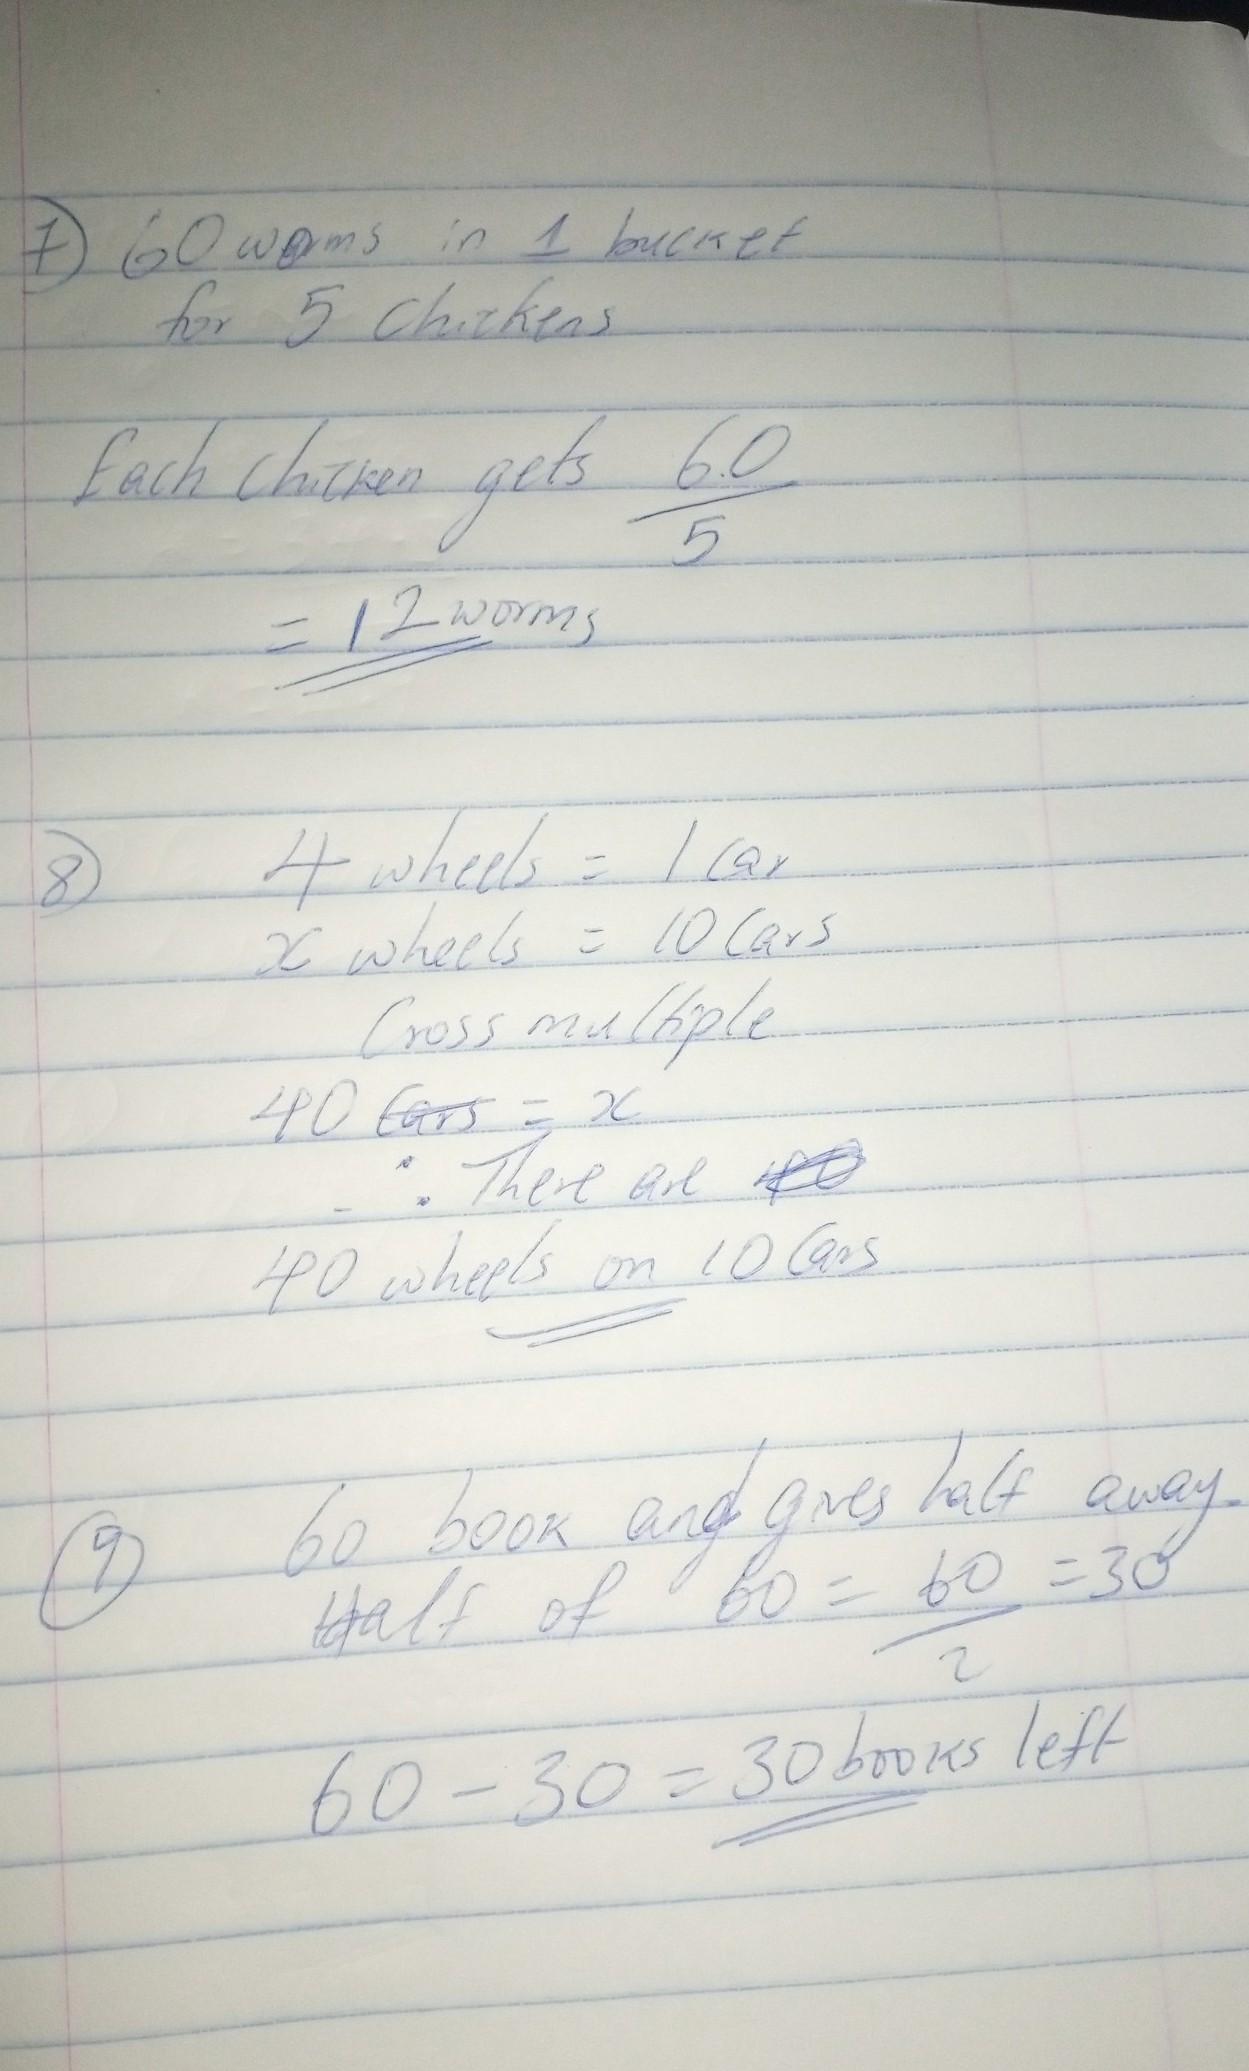 7) 60 worms in 1 bucket
for 5 chickens
Each chicken gets 60
5
= 12 worms
8) 4 wheels = 1 Car
x wheels = 10 Cars
Cross multiple
40 Cars = x
∴ There are 40
40 wheels on 10 Cars
9) 60 book and gives half away.
Half of 60 = 60 = 30
2
60 - 30 = 30 books left